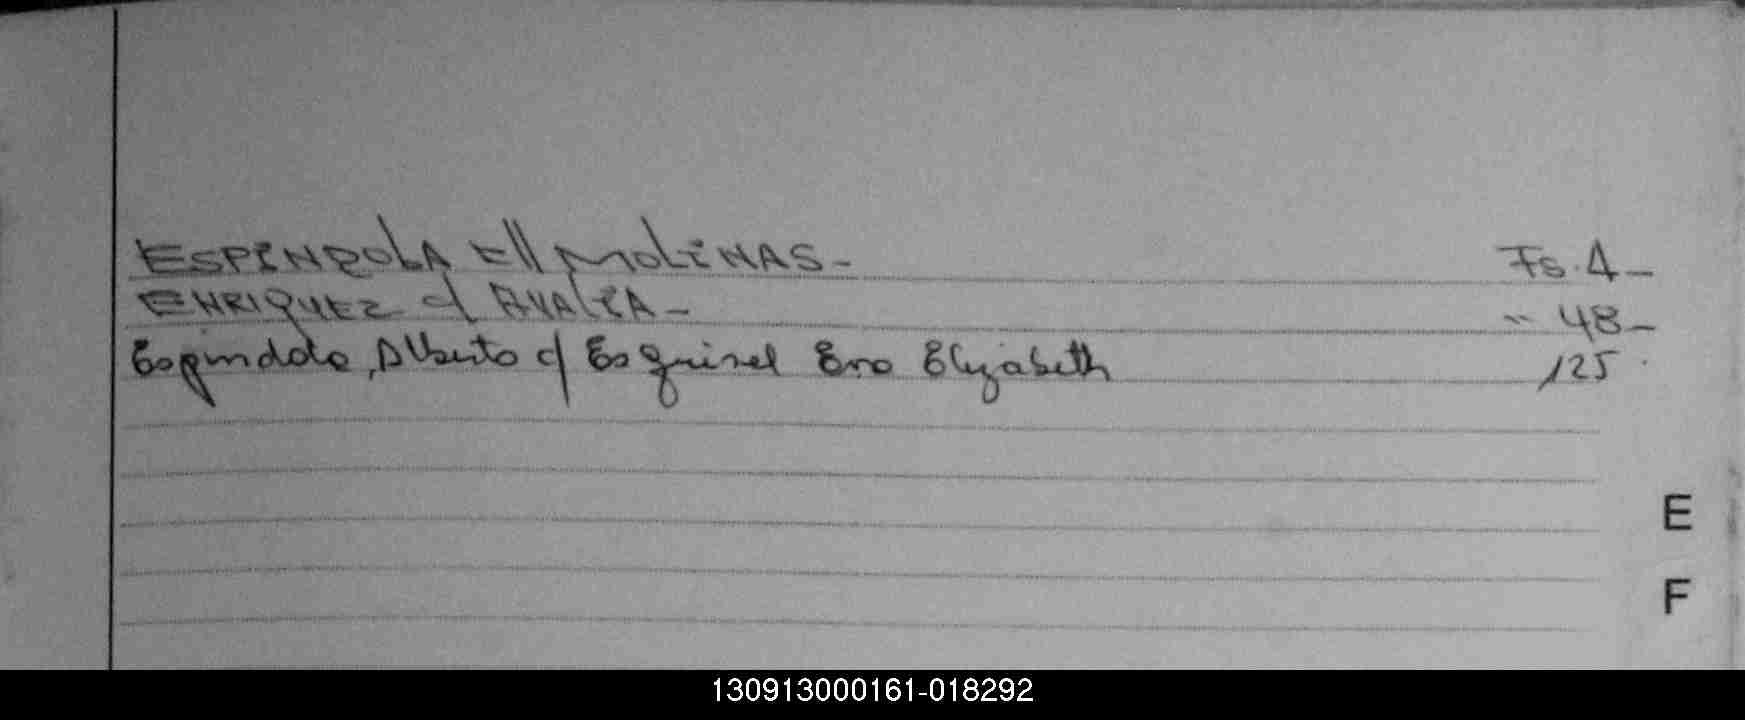 ESPINDOLA c// MOLINAS- Fs. 4-
ENRIQUEZ c/ AVALIA- " 48-
Espindola, Alberto c/ Esquivel Eva Elizabeth 125.
E
F
130913000161-018292